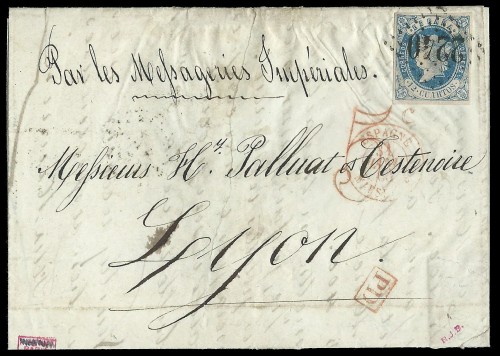 Par les Messageries Impériales.
CORREOS
12 CUARTOS
2240
ESPAGNE
Messieurs Hy. Palluat & Testenoire
Lyon.
PD
R.J.B.